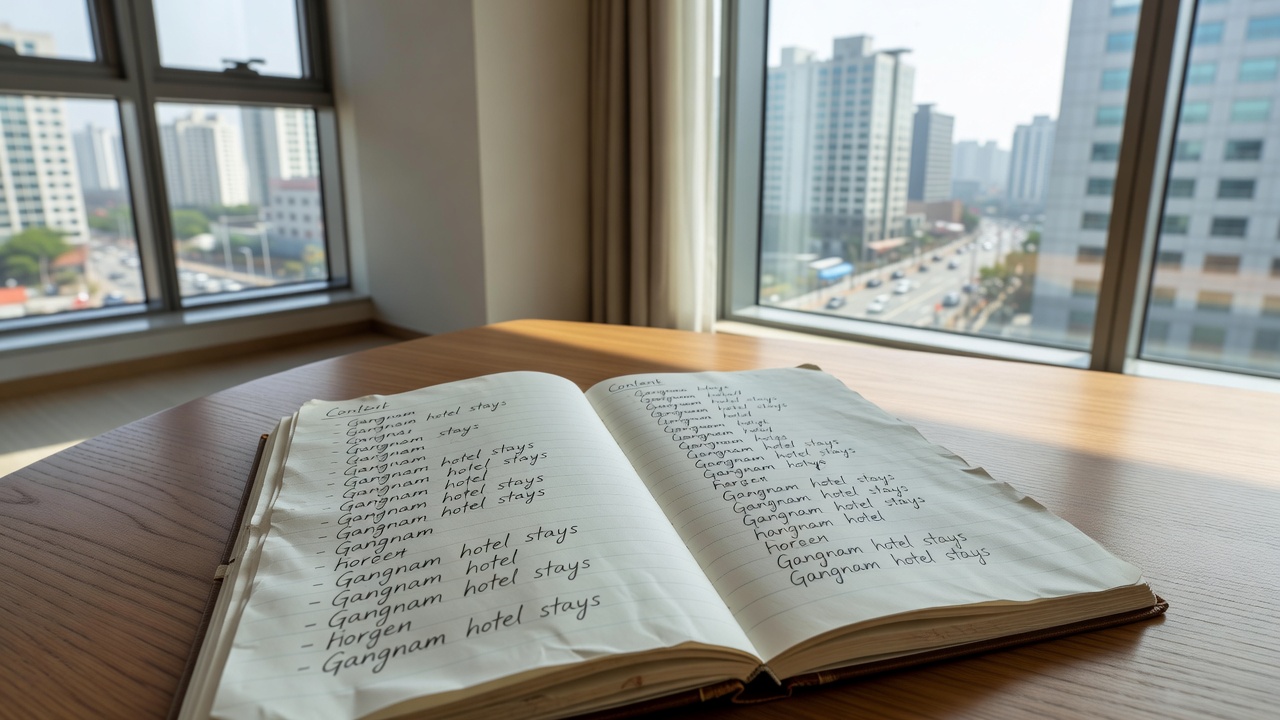 Content
- Gangnam hotel stays
- Gangnam
- Gangnam stays
- Gangnam
- Gangnam hotel stays
- Gangnam hotel stays
- Gangnam hotel stays
- Gangnam hotel stays
- Gangnam
- horeen
- Gangnam hotel stays
- Gangnam hotel
- Gangnam hotel stays
- horgen
- Gangnam hotel stays
Content
Gangnam
Gangnam
Gangnam hotel stays
Gangnam hotel stays
Gangnam
Gangnam
Gangnam
Gangnam
Gangnam hotel stays
Gangnam hotel stays
Gangnam
horeen
Gangnam hotel stays
Gangnam hotel stays
Gangnam hotel stays
hangnam hotel
horeen
Gangnam hotel stays
Gangnam hotel stays